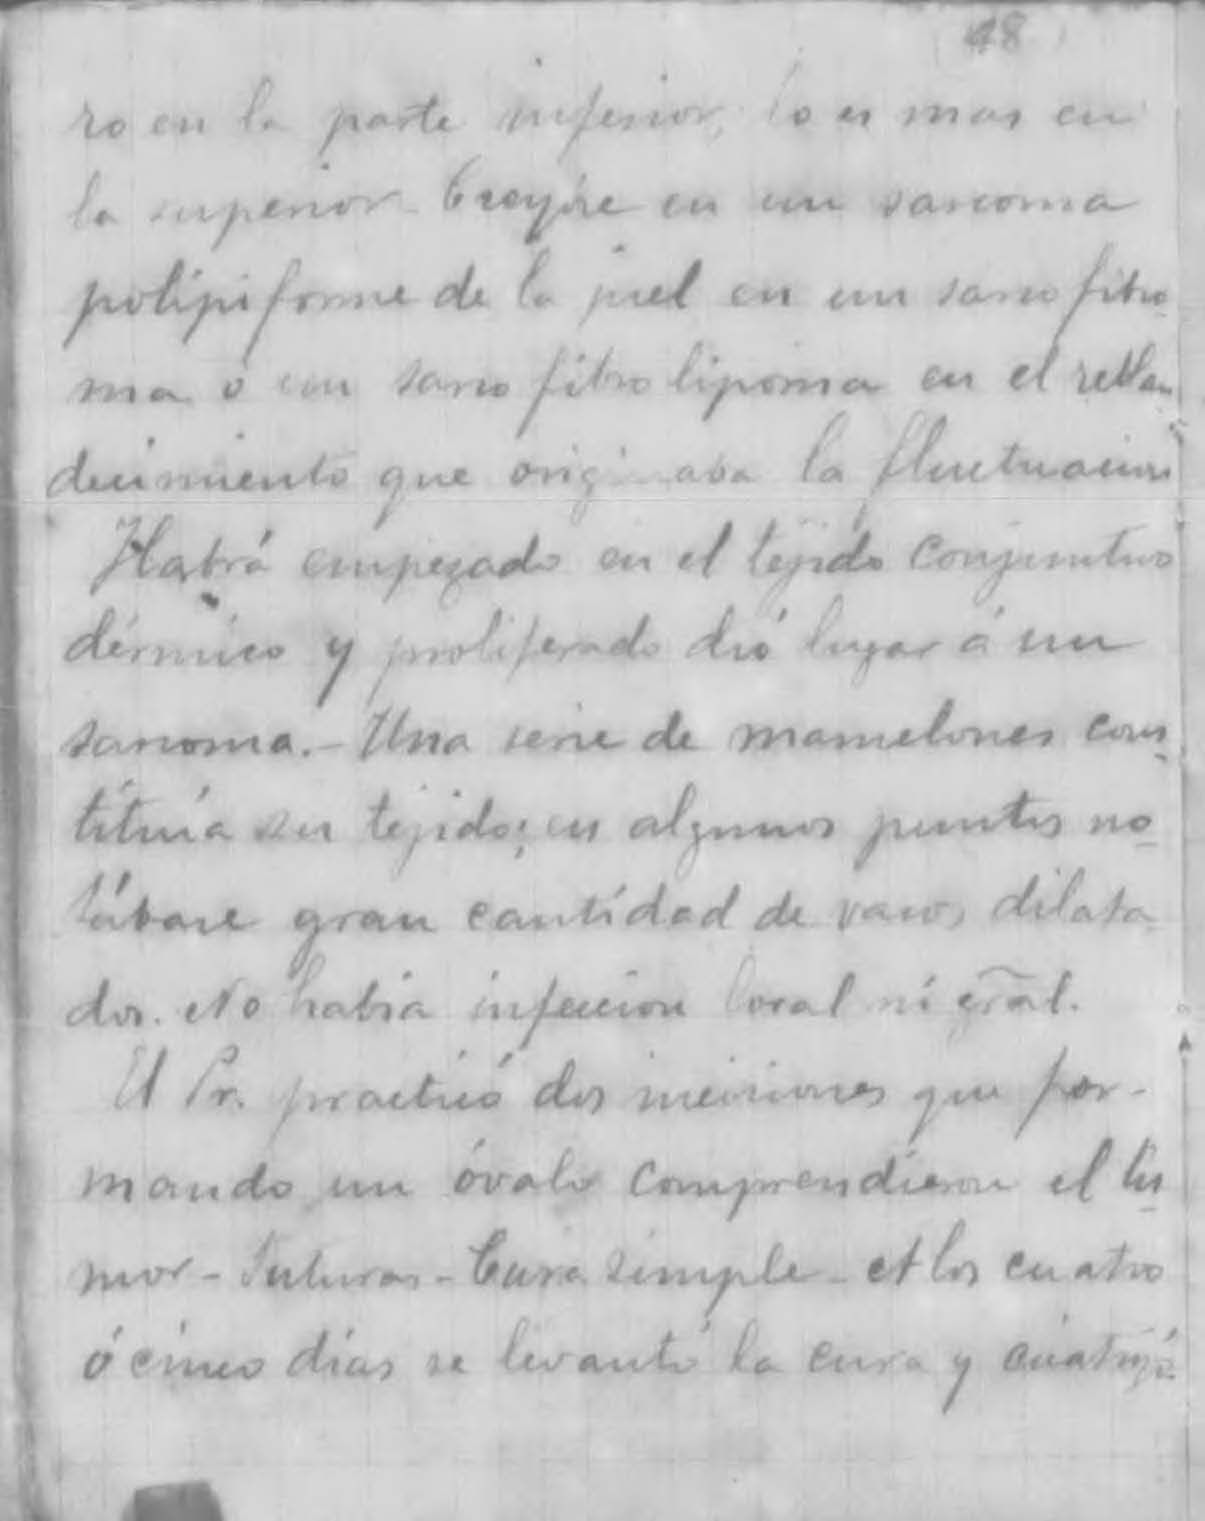 48
ro en la parte inferior, lo es mas en
la superior - Creyóse en un sarcoma
polipiforme de la piel en un sarcofibro-
ma ó un sarco fibro lipoma en el reblan-
decimiento que originaba la fluctuacion
Habrá empezado en el tejido conjuntivo
dérmico y proliferado dió lugar á un
sarcoma. - Una serie de mamelones cons-
tituía su tejido; en algunos puntos no-
tábase gran cantidad de vasos dilata
dos. No habia infeccion local ni gral.
El Pr. practicó dos incisiones que for-
mando un óvalo comprendieron el tu-
mor - Suturas - Cura simple - A los cuatro
ó cinco días se levantó la cura y